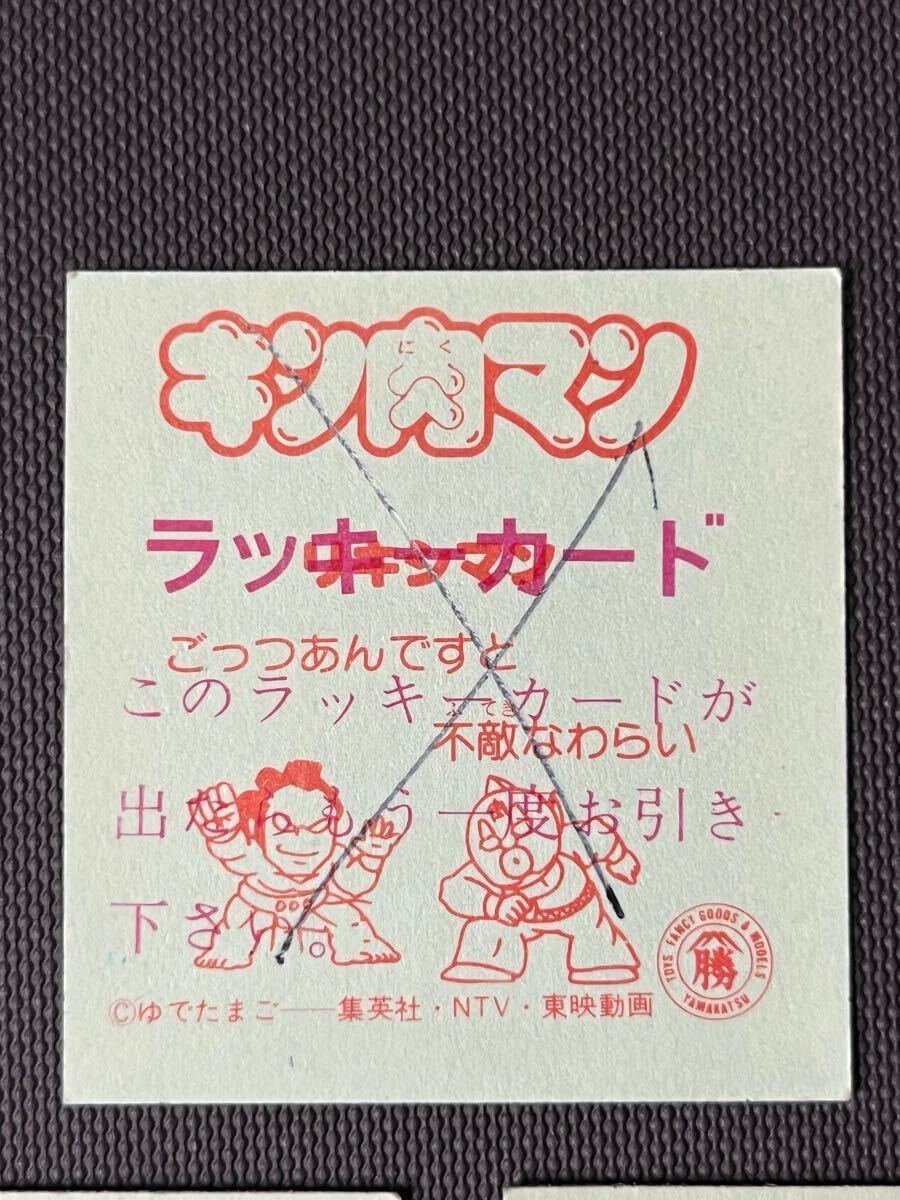 にく
キン肉マン
ラッキーカード
ごっつあんですと
このラッキーカードが
ふてき
不敵なわらい
出たらもう一度お引き
下さい。
TOYS FANCY GOODS & MODELS
勝
YAMAKATSU
©ゆでたまご——集英社・NTV・東映動画